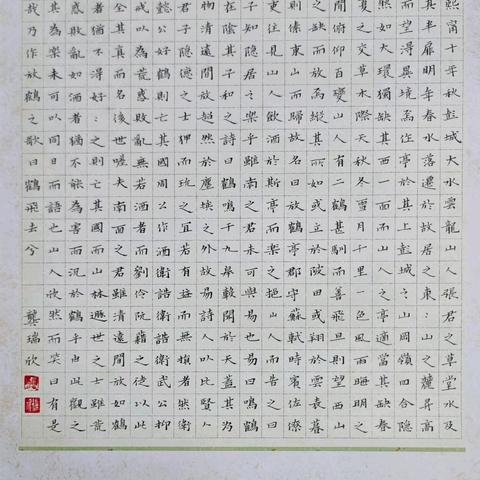 熙甯十年秋彭城大水雲龍山人張君之草堂水及
其半扉明年春水落遷於故居之東〻之麓昇高
而望得異境焉作亭於其上彭城之山岡嶺四合隱
然如大環獨缺其西一面而山人之亭適當其缺春
夏之交草木際天秋冬雪月千里一色風雨晦明之
間俯仰百變山人有二鶴甚馴而善飛旦則望西山
之缺而放焉縱其所如或立於陂田或翔於雲表暮
則傃東山而歸故名曰放鶴亭郡守蘇軾時從賓佐僚
吏往見山人飲酒於斯亭而樂之挹山人而告之曰
子知隱居之樂乎雖南面之君未可與易也易曰鳴鶴
在陰其子和之詩曰鶴鳴于九皋聲聞於天蓋其為
物清遠閒放超然於塵埃之外故易詩人以比賢人
君子隱德之士狎而玩之宜若有益而無損者然衛
懿公好鶴則亡其國周公作酒誥衛武公作抑
戒以為荒惑敗亂無若酒者而劉伶阮藉之徒以此
全其真而名後世嗟夫南面之君雖清遠閒放如鶴
者猶不得好〻之則亡其國而山林遯世之士雖荒
惑敗亂如酒者猶不能為害而況於鶴乎由此觀之
其為樂未可以同日而語也山人欣然而笑曰有是
哉乃作放鶴之歌曰鶴飛去兮
龔瑞欣